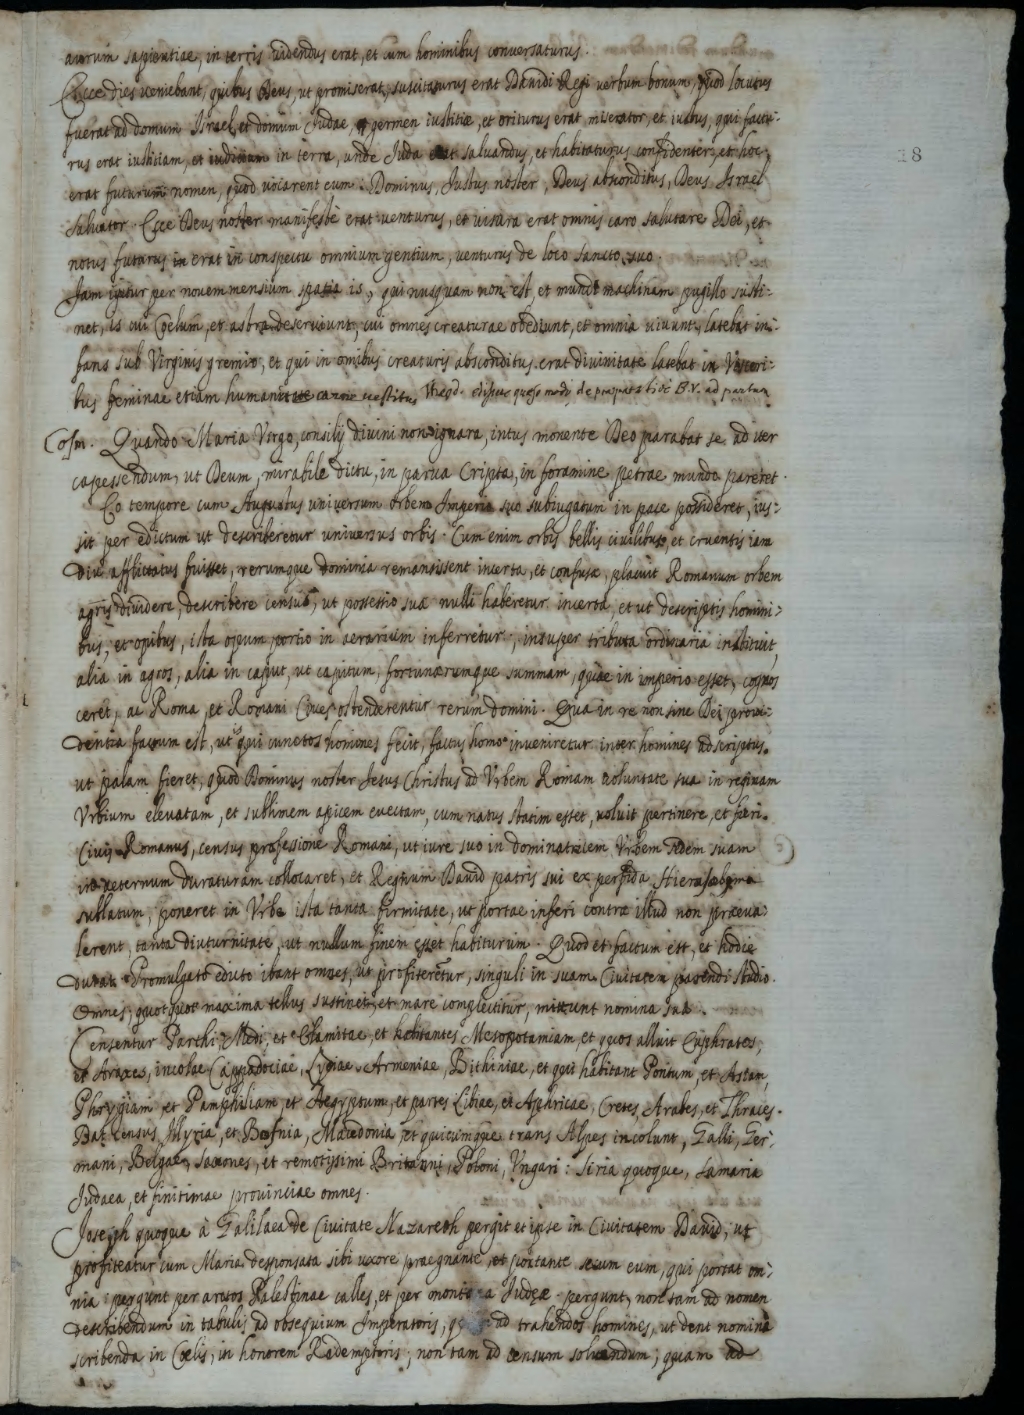 auorum sapientiae, in terris videndus erat, et cum hominibus conversaturus.
Ecce dies veniebant, quibus Deus, ut promiserat, suscitaturus erat Dauidi Regi verbum bonum, quod locutus
fuerat ad domum Israel, et domum Iudae, germen iustitiae, et oriturus erat miserator, et iustus, qui factu-
rus erat iustitiam, et iudicium in terra, unde Iuda erat saluandus, et habitaturus confidenter, et hoc
18
erat futurum nomen, quod vocarent eum: Dominus, Iustus noster, Deus absconditus, Deus Israel
Saluator. Ecce Deus noster manifestè erat venturus, et visura erat omnis caro salutare Dei, et
notus futurus erat in conspectu omnium gentium, venturus de loco sancto suo.
Iam igitur per novem mensium spatia is, qui nusquam non est, et mundi machinam pugillo susti-
net, is cui Coelum, et astra deserviunt, cui omnes creaturae obediunt, et omnia vivunt, latebat in-
fans sub Virginis gremio, et qui in omibus creaturis absconditus erat divinitate latebat in Visceri-
bus feminae etiam humanitate carnis vestitus. de praeparatioe B.V. ad partum
Cosm. Quando Maria Virgo, consilij divini non ignara, intus monente Deo parabat se ad iter
capessendum, ut Deum, mirabile dictu, in parua Cripta, in foramine petrae mundo pareret.
Eo tempore cum Augustus universum orbem Imperio suo subiugatum in pace possideret, ius-
sit per edictum ut describeretur universus orbis. Cum enim orbis bellis civilibus, et cruentis iam
diu afflictatus fuisset, rerumque dominia remansissent incerta, et confusa, placuit Romanum orbem
agris dividere, describere censu, ut possessio suae nulli haberetur incerta, et ut descriptis homini-
bus, et opibus, ista opum portio in aerarium inferretur; insuper tributa ordinaria instituit,
alia in agros, alia in caput, ut capitum, fortunarumque summam, quae in imperio esset, cognos
ceret, ac Roma, et Romani Cives ostenderentur rerum domini. Qua in re non sine Dei prouî-
dentia factum est, ut qui cunctos homines fecit, factus homo inveniretur inter homines adscriptus.
ut palam fieret, quod Dominus noster Jesus Christus ad Urbem Romam voluntate sua in reginam
Urbium elevatam, et sublimem apicem evectam, cum natus statim esset, voluit pertinere, et fieri
Civis Romanus, census professione Romani, ut iure suo in dominatricem Urbem sedem suam
in aeternum duraturam collocaret, et Regnum David patris sui ex perfida Hierosolyma
sublatum, poneret in Urbe ista tanta firmitate, ut portae inferi contra illud non praeva-
lerent, tanta diuturnitate, ut nullum finem esset habiturum. Quod et factum est, et hodie
durat. Promulgato edicto ibant omnes, ut profiterentur, singuli in suam Civitatem parendi studio.
Omnes, quotquot maxima tellus sustinet, et mare complectitur, mittunt nomina sua.
Censentur Parthi, Medi, et Elamitae, et habitantes Mesopotamiam, et quos alluit Euphrates,
et Araxes, incolae Cappadociae, Lyciae, Armeniae, Bithiniae, et qui habitant Pontum, et Asiam,
Phrygiam et Pamphiliam, et Aegyptum, et partes Libiae, et Aphricae, Cretes, Arabes, et Thraces.
Dat census Illyria, et Bosnia, Macedonia et quicumque trans Alpes incolunt, Galli, Ger-
mani, Belgae, Saxones, et remotissimi Britanni, Poloni, Ungari: Siria quoque, Samaria
Iudaea, et finitimae provinciae omnes.
Joseph quoque à Galilaea de Civitate Nazareth pergit et ipse in Civitatem David, ut
profiteatur cum Maria desponsata sibi uxore praegnante, et portante secum eum, qui portat om-
nia: pergunt per arctos Palestinae calles, et per montana Iudaeae pergunt, non tam ad nomen
describendum in tabulis ad obsequium Imperatoris, quam ad trahendos homines, ut dent nomina
scribenda in Coelis, in honorem Redemptoris; non tam ad censum solvendum; quam ad